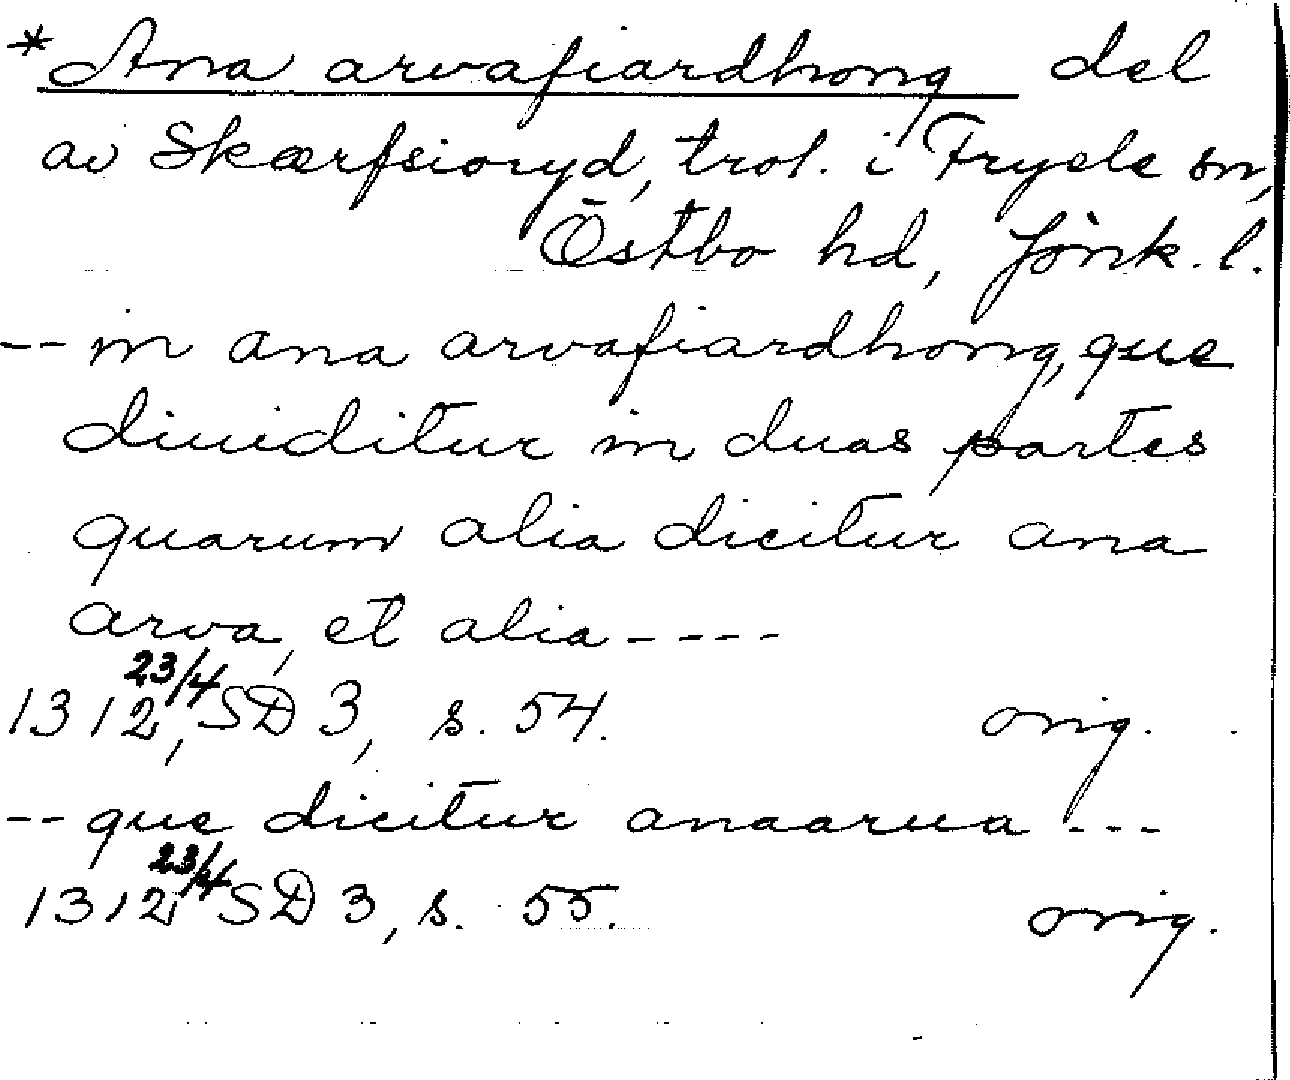 *Ana arvafiardhong del
av Skærfsioryd, trol. i Fryele sn,
Östbo hd, Jönk. l.
-- in ana arvafiardhong, que
diuiditur in duas partes
quarum alia dicitur ana
arva, et alia ----
1312 23/4, SD 3, s. 54. orig.
-- que dicitur anaarua ---
1312 23/4 SD 3, s. 55. orig.